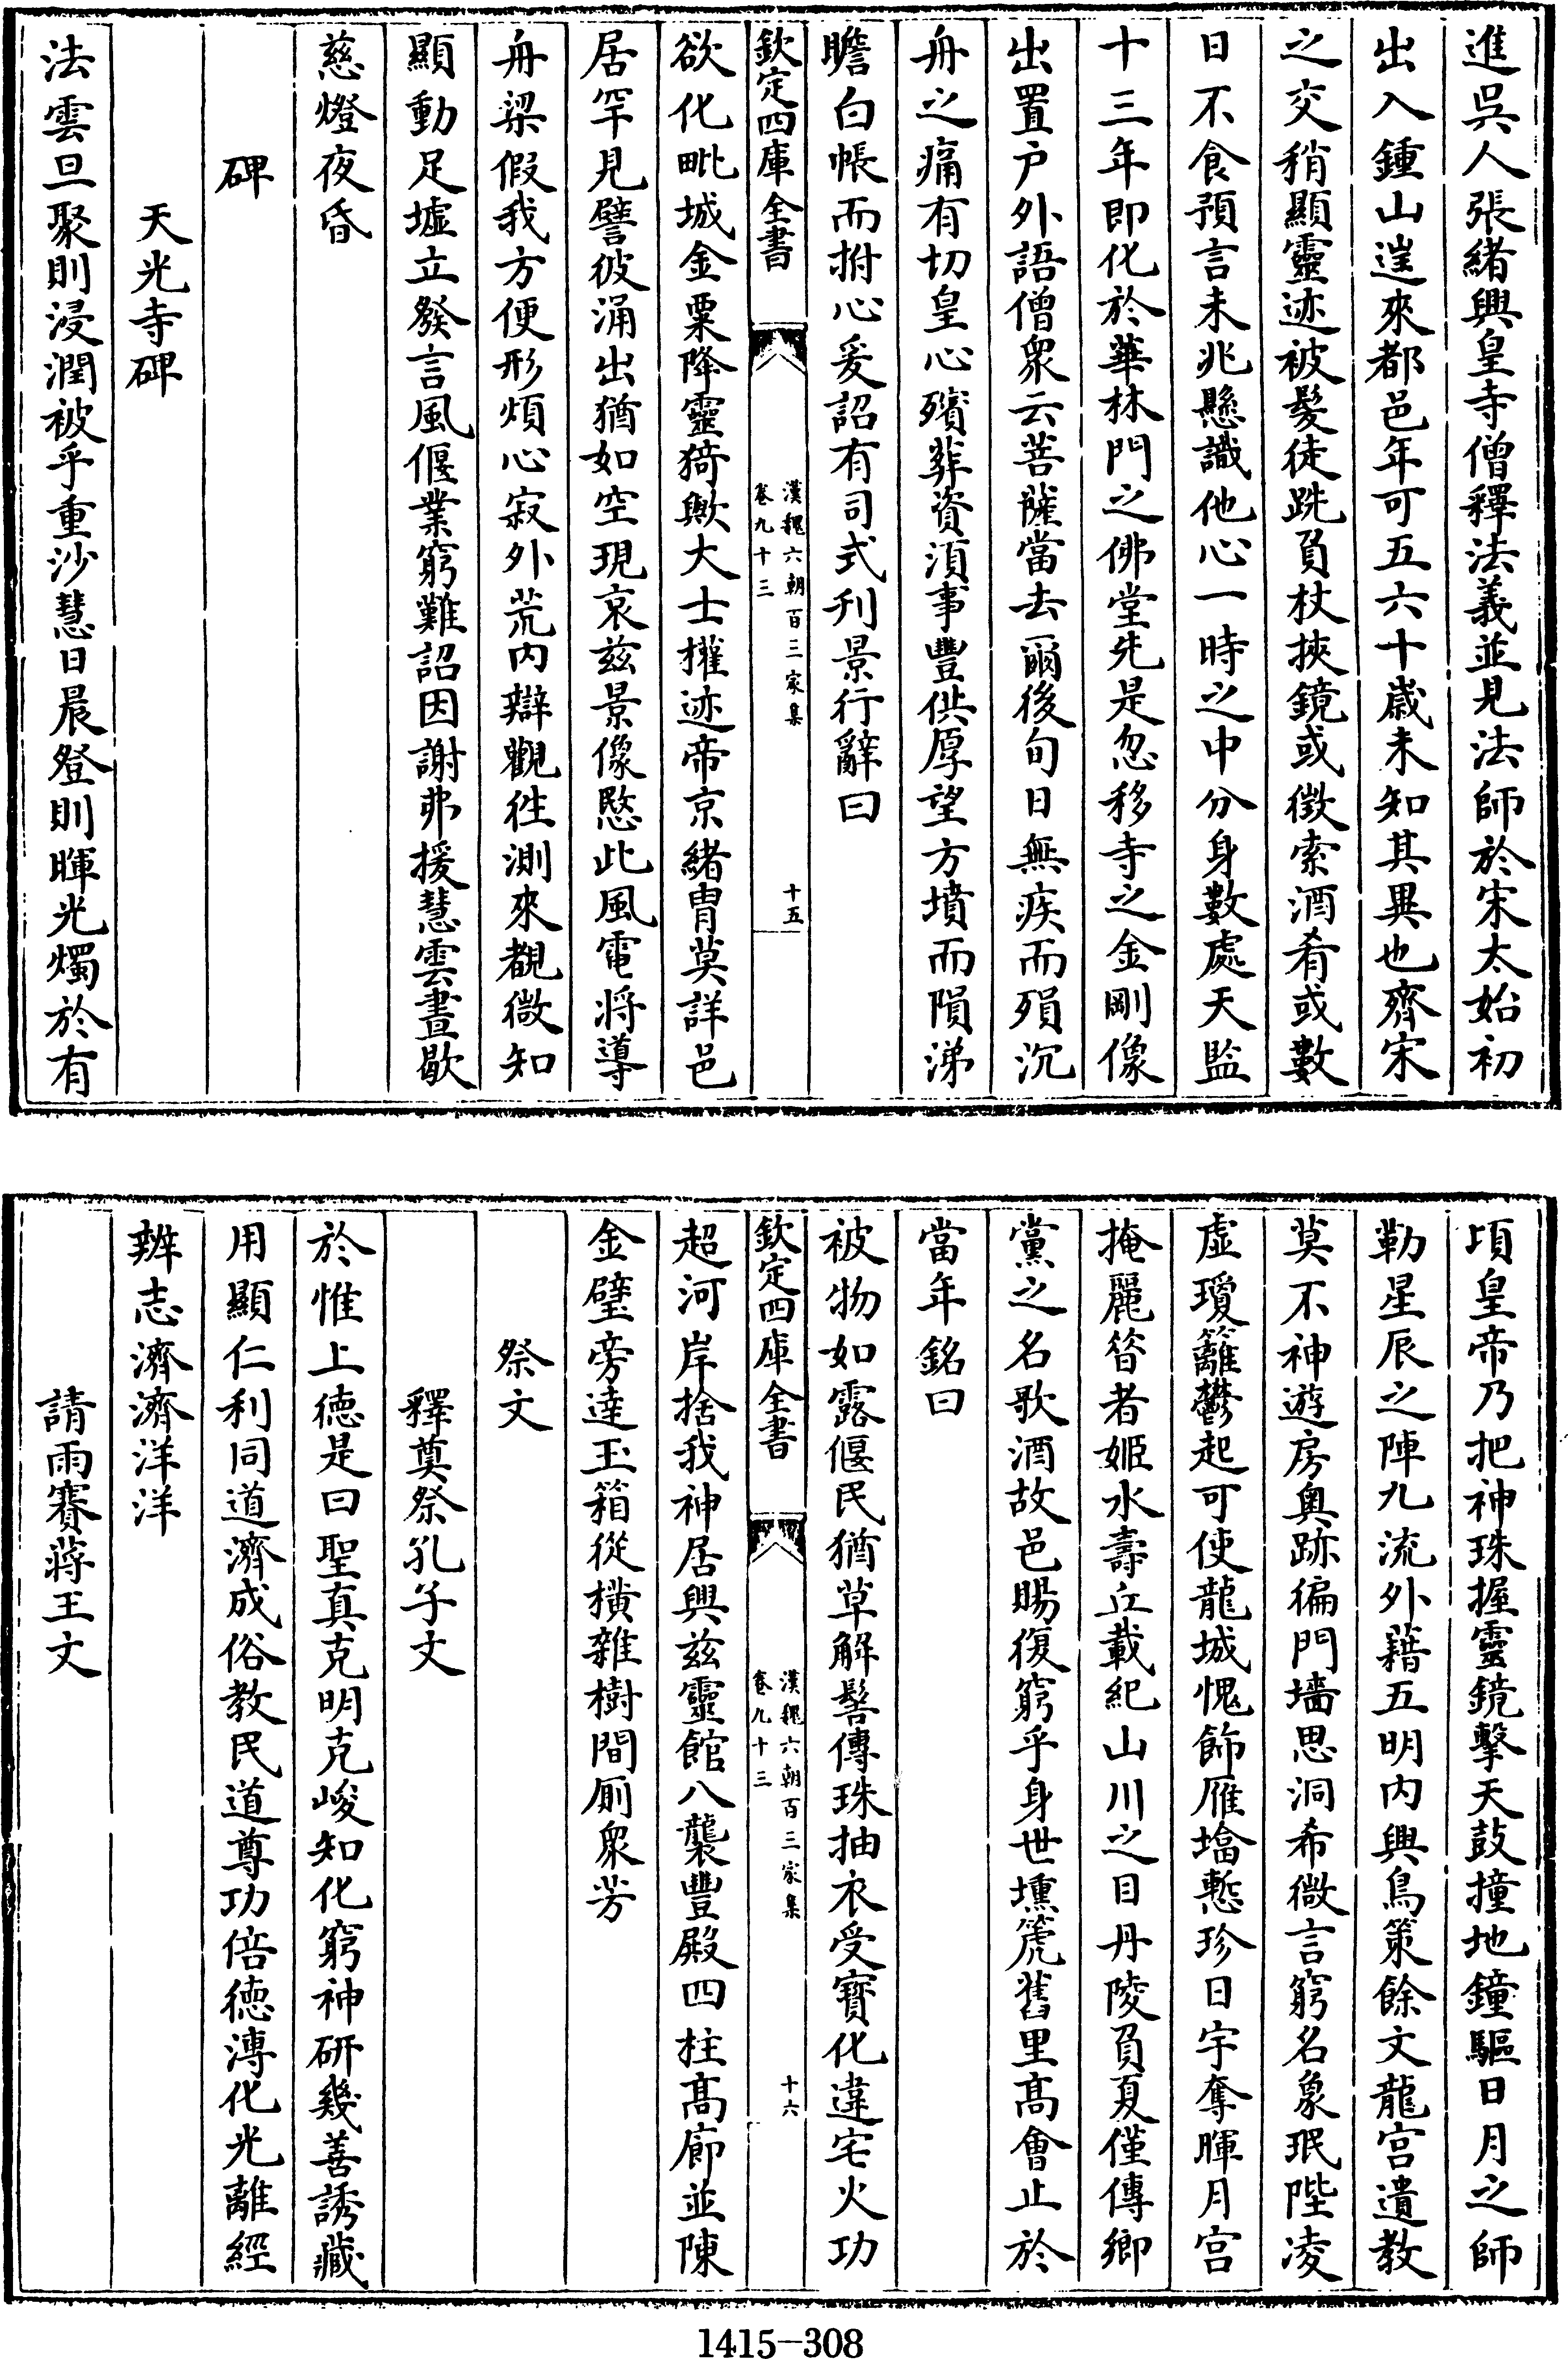 進吳人張緒興皇寺僧釋法義並見法師於宋太始初
出入鍾山遑來都邑年可五六十歲未知其異也齊宋
之交稍顯靈迹被髮徒跣負杖挾鏡或徵索酒肴或數
日不食預言未兆懸識他心一時之中分身數處天監
十三年即化於華林門之佛堂先是忽移寺之金剛像
出置户外語僧衆云菩薩當去爾後旬日無疾而殞沉
舟之痛有切皇心殯葬資湏事豐供厚望方墳而隕涕
瞻白帳而拊心爰詔有司式刋景行辭曰
欽定四庫全書
漢魏六朝百三家集
卷九十三
十五
欲化毗城金粟降靈猗歟大士權迹帝京緒胄莫詳邑
居罕見譬彼涌出猶如空現哀兹景像愍此風電將導
舟梁假我方便形煩心寂外荒内辯觀徃測來覩微知
顯動足墟立發言風偃業窮難詔因謝弗援慧雲晝歇
慈燈夜昏
碑
天光寺碑
法雲旦聚則浸潤被乎重沙慧日晨登則暉光燭於有
頃皇帝乃把神珠握靈鏡擊天鼓撞地鐘驅日月之師
勒星辰之陣九流外籍五明内興鳥策餘文龍宫遺教
莫不神遊房奥跡徧門墻思洞希微言窮名象珉陛凌
虛瓊籬鬱起可使龍城愧飾雁墖慙珍日宇奪暉月宫
掩麗昝者姬水壽丘載紀山川之目丹陵負夏僅傳鄉
黨之名歌酒故邑賜復窮乎身世壎箎舊里髙會止於
當年銘曰
被物如露偃民猶草解髻傳珠抽衣受寳化違宅火功
欽定四庫全書
漢魏六朝百三家集
卷九十三
十六
超河岸捨我神居興兹靈館八襲豐殿四柱髙廊並陳
金璧旁達玉箱從橫雜樹間厠衆芳
祭文
釋奠祭孔子文
於惟上徳是曰聖真克明克峻知化窮神研幾善誘藏
用顯仁利同道濟成俗教民道尊功倍徳溥化光離經
辨志濟濟洋洋
請雨賽蔣王文
1415-308